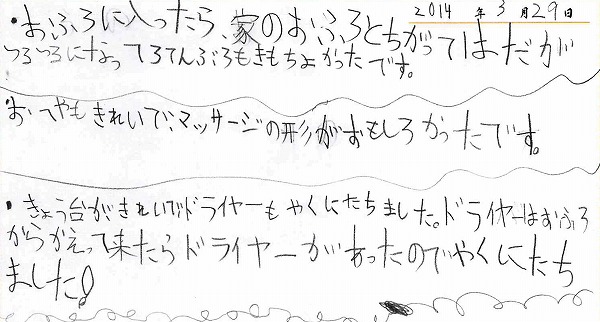 2014 年 3 月 29 日
・おふろに入ったら、家のおふろとちがってはだが
つるつるになってろてんぶろもきもちよかったです。
おへやもきれいで、マッサージの形がおもしろかったです。
・きょう台がきれいでドライヤーもやくにたちました。ドライヤーはおふろ
からかえって来たらドライヤーがあったのでやくにたち
ました!